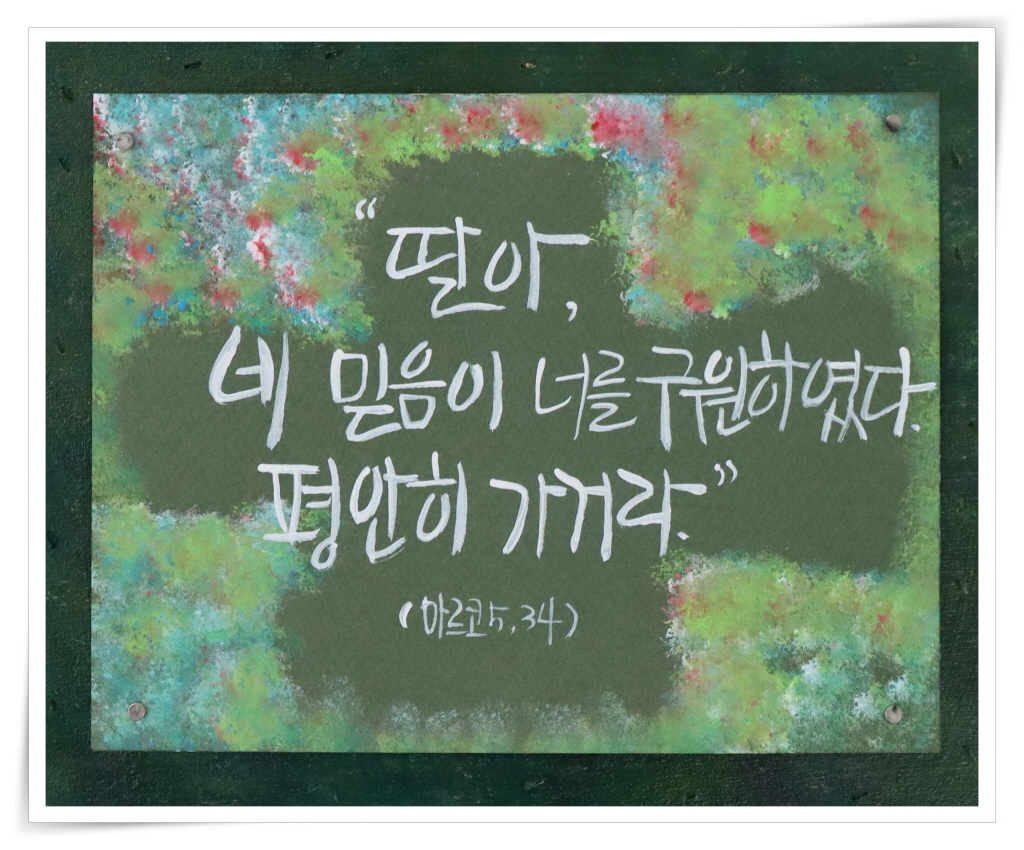 “딸아,
네 믿음이 너를 구원하였다.
평안히 가거라.”
(마르코 5, 34)